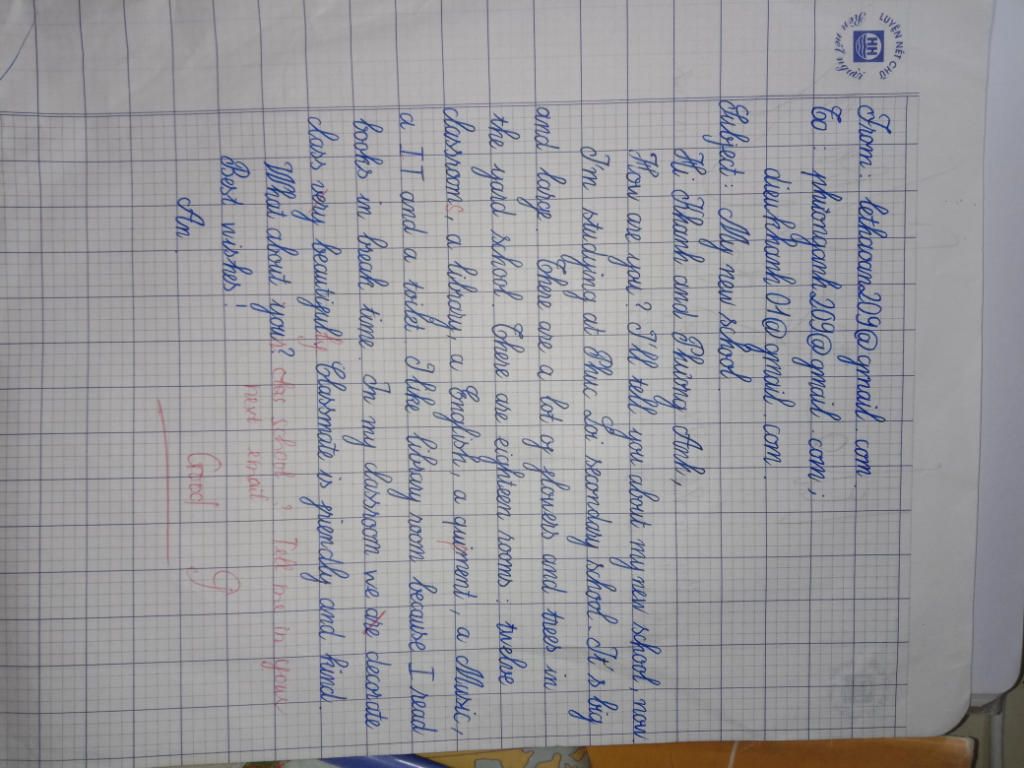 LUYỆN NÉT CHỮ
HH
Rèn nét người
From: lethaoan209@gmail.com
To: phuonganh209@gmail.com;
dieukhanh01@gmail.com.
Subject: My new school.
Hi Khanh and Phương Anh,
How are you? I'll tell you about my new school, now.
I'm studying at Phuc Loi secondary school. It's big
and large. There are a lot of flowers and trees in
the yard school. There are eighteen rooms: twelve
classrooms, a library, a English, a quipment, a Music,
a IT and a toilet. I like library room because I read
books in break time. In my classroom we are decorate
class very beautifully. Classmate is friendly and kind.
What about your? school? Tell me in your
next email
Best wishes!
An.
Good